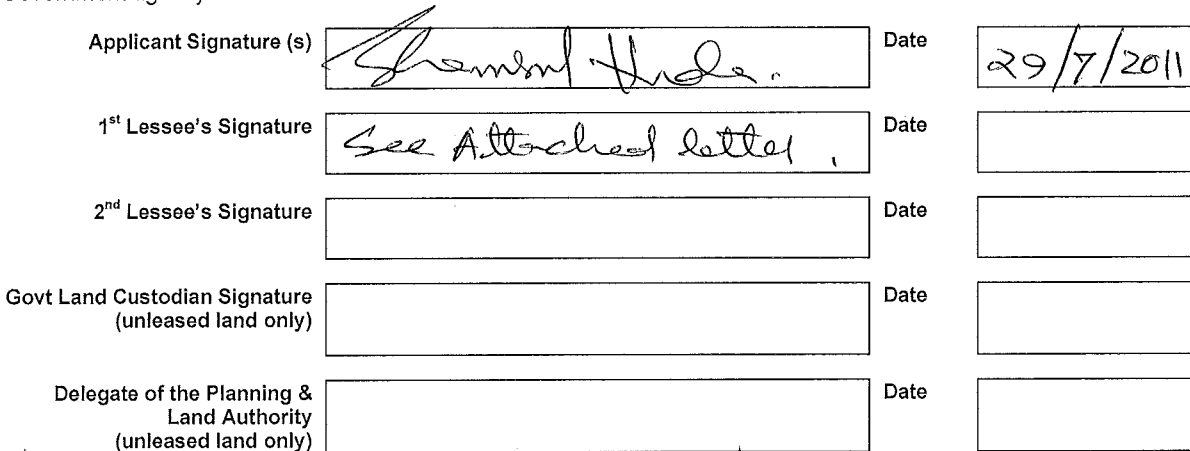 Applicant Signature (s) Date 29/7/2011
1st Lessee's Signature See Attached letter. Date
2nd Lessee's Signature Date
Govt Land Custodian Signature Date
(unleased land only)
Delegate of the Planning & Date
Land Authority
(unleased land only)